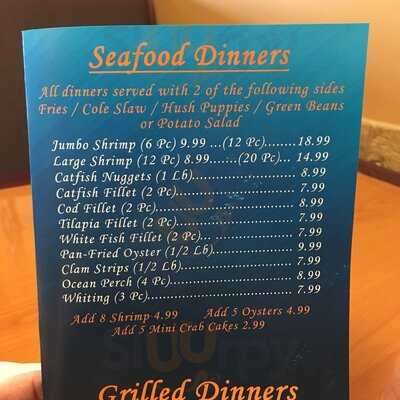 Seafood Dinners
All dinners served with 2 of the following sides
Fries / Cole Slaw / Hush Puppies / Green Beans
or Potato Salad
Jumbo Shrimp (6 Pc) 9.99 ...(12 Pc)........18.99
Large Shrimp (12 Pc) 8.99.......(20 Pc)... 14.99
Catfish Nuggets (1 Lb)........................... 8.99
Catfish Fillet (2 Pc)................................ 7.99
Cod Fillet (2 Pc)..................................... 8.99
Tilapia Fillet (2 Pc)................................ 7.99
White Fish Fillet (2 Pc)........................... 7.99
Pan-Fried Oyster (1/2 Lb)........................ 9.99
Clam Strips (1/2 Lb)............................... 7.99
Ocean Perch (4 Pc)................................. 8.99
Whiting (3 Pc)........................................ 7.99
Add 8 Shrimp 4.99 Add 5 Oysters 4.99
Add 5 Mini Crab Cakes 2.99
Grilled Dinners